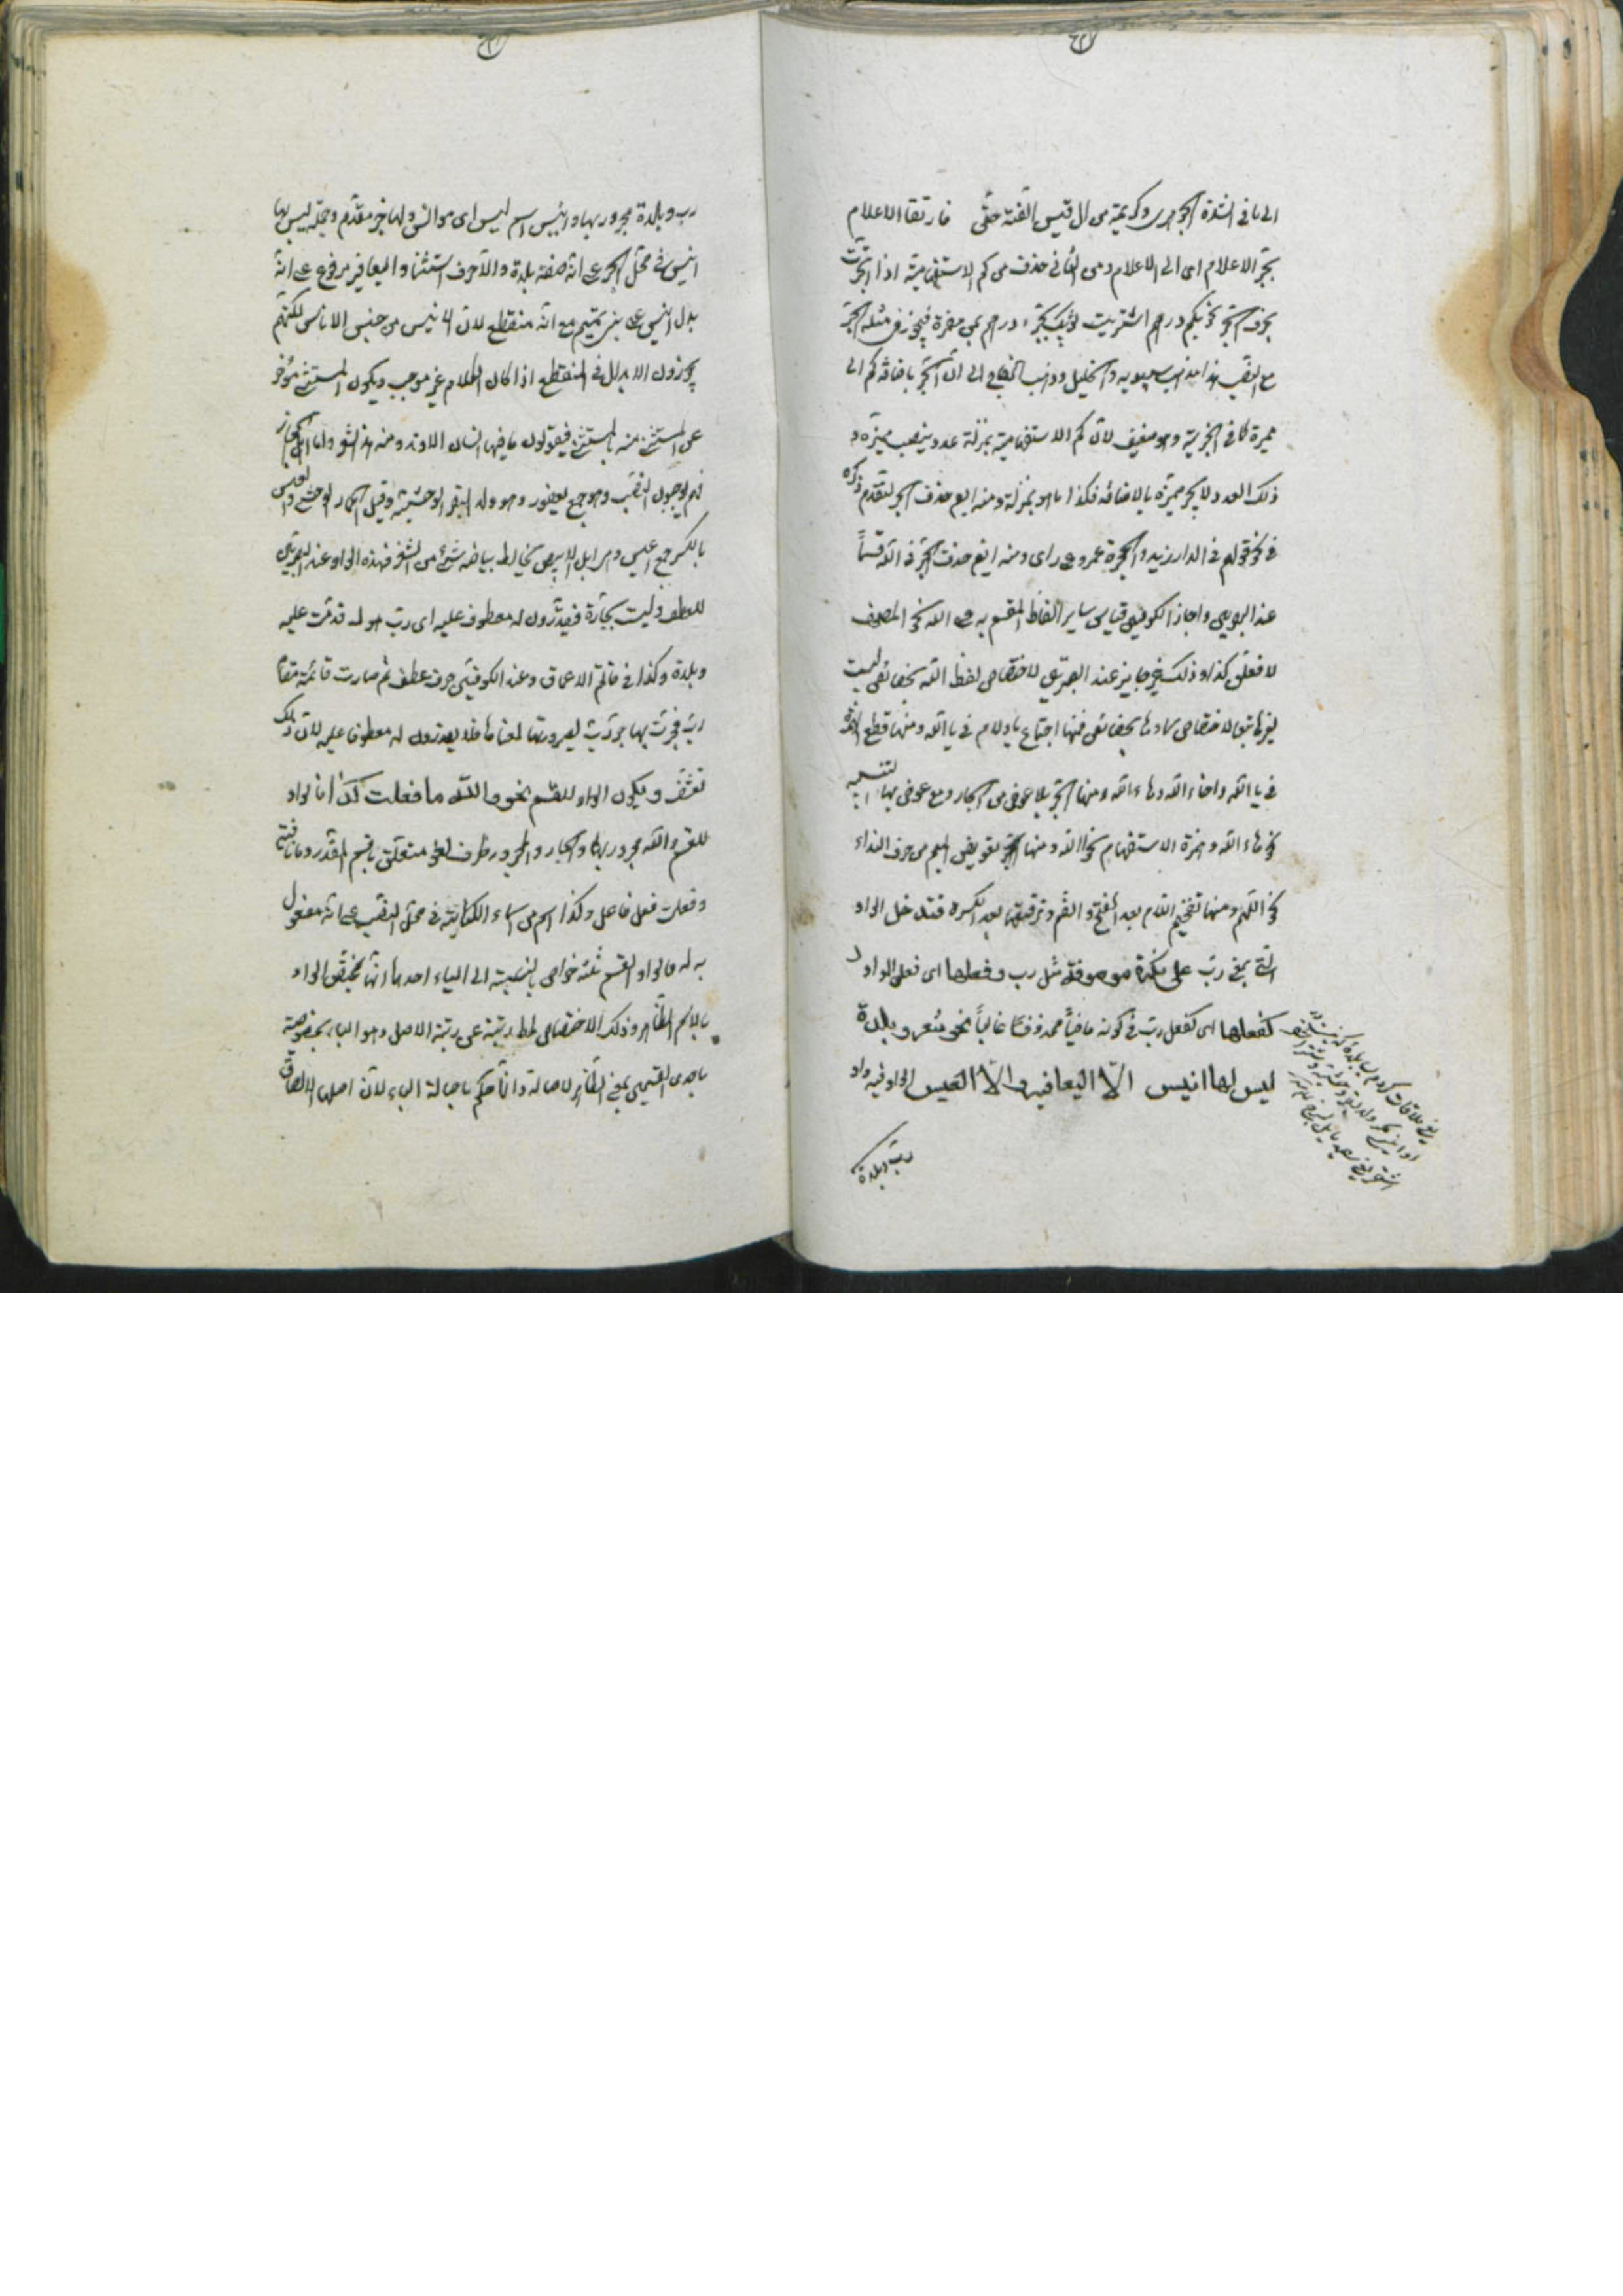 الى ما فى الشذرة الجوهرى وكريمة من ال قيس الفته حتى فارتقا الاعلام
بجر الاعلام اى الى الاعلام ومن الثانى حذف من كم الاستفهامية اذا انجرت
بحرف الجر نحو بكم درهم اشتريت ثوبك بجر درهم بمن مضمرة فيجوز فى مثله الجر
مع النصب هذا مذهب سيبويه والخليل وذهب الزجاج الى ان الجر باضافة كم الى
مميزه كما فى الخبرية وهو ضعيف لان كم الاستفهامية بمنزلة عدد ينصب مميزه و
ذلك العدد لا يجر مميزه بالاضافة فكذا ما هو بمنزلته ومنه ايض حذف الجر لتقدم ذكره
فى نحو قولهم فى الدار زيد والحجرة عمرو على راى ومنه ايض حذف الجر فى الله قسماً
عند البصريين واجاز الكوفيين قياس ساير الفاظ المقسم به على الله نحو المصحف
لا فعلن كذا وذلك غير جايز عند البصريين لاختصاص لفظ الله بخصائص ليست
لغيرها تبعا لاختصاص مسماها بخصائص فمنها اجتماع يا ولام فى يا الله ومنها قطع الهمزة
فى يا الله وافاء الله وهاء الله ومنها الجر بلا عوض من الجار ومع عوض بهاء التنبيه
نحو هاء الله وهمزة الاستفهام نحو االله ومنها تعويض الميم من حرف النداء
نحو اللهم ومنها تفخيم اللام بعد الفتح والضم وترقيقها بعد الكسرة فتدخل الواو
التى بمعنى رب على نكرة موصوفة مثل رب وفعلها اى فعل الواو
كفعلها اى كفعل رب فى كونه ماضياً محذوفاً غالباً نحو شعر وبلدة
ليس لها انيس الّا اليعافير والّا العيس الواو فيه واو
رب وبلدة
رب وبلدة مجرور بها وانيس اسم ليس اى موانس ولها خبر مقدم وجملة ليس لها
انيس فى محل الجر على انه صفة بلدة والا حرف استثنا واليعافير مرفوع على انه
بدل انيس على بنى تميم مع انه منقطع لان الانيس من جنس الاناس لكنهم
يجوزون الابدال فى المنقطع اذا كان الكلام غير موجب ويكون المستثنى مؤخر
عن المستثنى منه فيقولون ما فيها انسان الا وتد ومنه هذا الشعر واما اهل الحجاز
فهم يوجبون النصب وهو جمع يعفور وهو ولد البقر الوحشية وقيل الحمار الوحشى والعيس
بالكسر جمع اعيس وهى ابل الابيض يخالط بياضه شئ من الشقر فهذه الواو عند البصريين
للعطف وليست بجارة فيقدرون له معطوف عليه اى رب هول قدمت عليه
وبلدة وكذا فى قاتم الاعماق وعند الكوفيين حرف عطف ثم صارت قائمة مقام
رب فجرت بها جر رب لصيرورتها بمعناها فلا يقدرون له معطوفا عليه لان ذلك
تعسف ويكون الواو للقسم نحو والله ما فعلت كذا فالواو
للقسم والله مجرور بها والجار والمجرور ظرف لغو متعلق باقسم المقدر وما نافية
وفعلت فعل فاعل وكذا اسم من اسماء الكناية فى محل النصب على انه مفعول
به له والواو القسم ثلثه خواص بالنسبة الى الباء احدها انها تختص الواو
بالاسم الظاهر وذلك الاختصاص لحط رتبته عن رتبة الاصل وهو الباء بتخصيصه
باحدى القسمين بمعنى الظاهر لاصالة وانما حكم باصالة الباء لان اصلها الالصاق